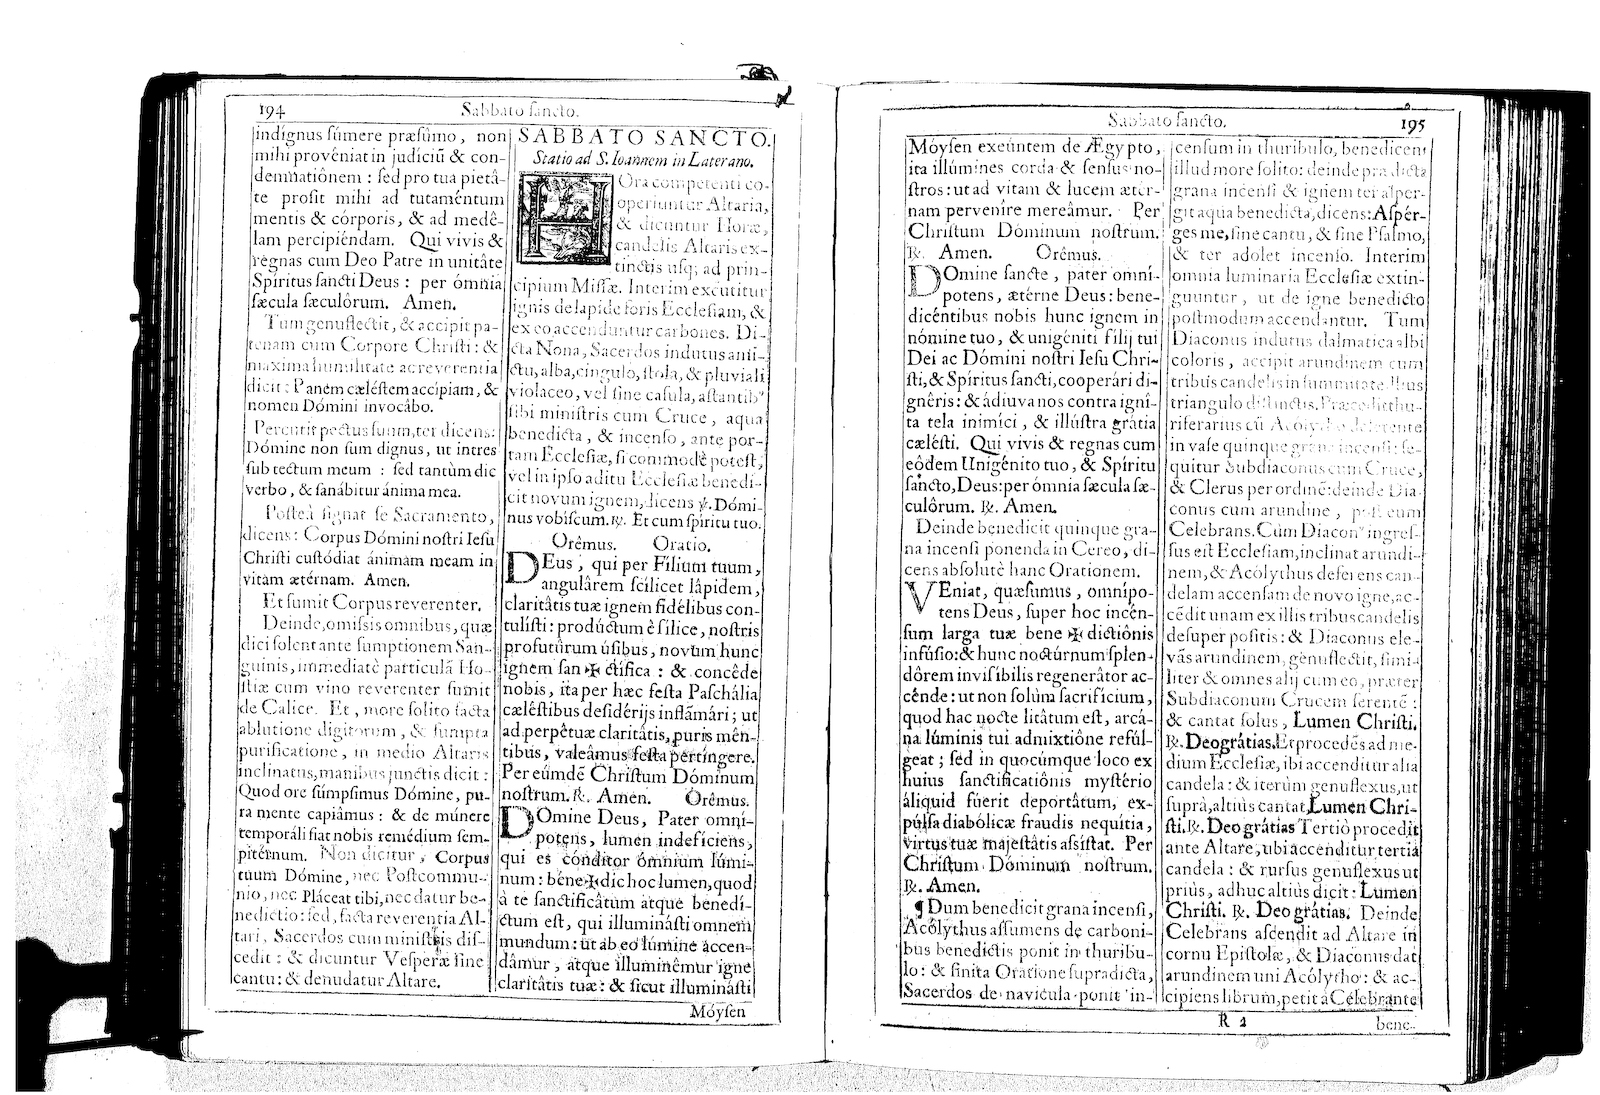 194
Sabbato ſancto.
indígnus ſúmere præſúmo, non
mihi provéniat in judíciũ & con-
demnatiônem : ſed pro tua pietâ-
te profit mihi ad tutaméntum
mentis & córporis, & ad medê-
lam percipiéndam. Qui vivis &
regnas cum Deo Patre in unitâte
Spíritus ſancti Deus : per ómnia
ſæcula ſæculôrum. Amen.
Tum genuflectit, & accipit pa-
tenam cum Corpore Chriſti : &
maxima humilitate ac reverentia
dicit : Panem cæléſtem accípiam, &
nomen Dómini invocâbo.
Percutit pectus ſuum, ter dicens:
Dómine non ſum dignus, ut intres
ſub tectum meum : ſed tantùm dic
verbo, & ſanábitur ánima mea.
Poſteà ſignat ſe Sacramento,
dicens: Corpus Dómini noſtri Ieſu
Chriſti cuſtódiat ánimam meam in
vitam ætérnam. Amen.
Et ſumit Corpus reverenter.
Deinde, omiſsis omnibus, quæ
dici ſolent ante ſumptionem San-
guinis, immediatè particulã Ho-
ſtiæ cum vino reverenter ſumit
de Calice. Et, more ſolito facta
ablutione digitorum, & ſumpta
purificatione, in medio Altaris
inclinatus, manibus junctis dicit :
Quod ore ſúmpſimus Dómine, pu-
ra mente capiâmus : & de múnere
temporáli fiat nobis remédium ſem-
pitérnum. Non dicitur, Corpus
tuum Dómine, nec Poſtcommu-
nio, nec Pláceat tibi, nec datur be-
nedictio: ſed, facta reverentia Al-
tari, Sacerdos cum miniſtris diſ-
cedit : & dicuntur Veſperæ ſine
cantu : & denudatur Altare.
SABBATO SANCTO.
Statio ad S. Ioannem in Laterano.
HOra competenti co-
operiuntur Altaria,
& dicuntur Horæ,
candelis Altaris ex-
tinctis uſq; ad prin-
cipium Miſſæ. Interim excutitur
ignis de lapide foris Eccleſiam, &
ex eo accenduntur carbones. Di-
cta Nona, Sacerdos indutus ami-
ctu, alba, cingulo, ſtola, & pluviali
violaceo, vel ſine caſula, aſtantibꝰ
ſibi miniſtris cum Cruce, aqua
benedicta, & incenſo, ante por-
tam Eccleſiæ, ſi commodè poteſt,
vel in ipſo aditu Eccleſiæ benedi-
cit novum ignem, dicens ℣. Dómi-
nus vobíſcum. ℟. Et cum ſpíritu tuo.
Orêmus. Oratio.
DEus, qui per Fílium tuum,
angulârem ſcílicet lâpidem,
claritâtis tuæ ignem fidélibus con-
tulíſti : prodúctum è ſílice, noſtris
profutûrum úſibus, novum hunc
ignem ſan ✠ ctífica : & concêde
nobis, ita per hæc feſta Paſchália
cæléſtibus deſidérijs inflãmári ; ut
ad perpétuæ claritâtis, puris mén-
tibus, valeâmus feſta pertíngere.
Per eúmdẽ Chriſtum Dóminum
noſtrum. ℟. Amen. Orêmus.
DOmine Deus, Pater omní-
potens, lumen indefíciens,
qui es cónditor ómnium lúmi-
num : béne ✠ dic hoc lumen, quod
à te ſanctificâtum atque benedí-
ctum eſt, qui illuminâſti omnem
mundum : ut ab eo lúmine accen-
dâmur, atque illuminêmur igne
claritâtis tuæ : & ſicut illuminâſti
Móyſen
Sabbato ſancto.
195
Móyſen exeúntem de Ægypto,
ita illúmines corda & ſenſus no-
ſtros : ut ad vitam & lucem ætér-
nam pervenîre mereâmur. Per
Chriſtum Dóminum noſtrum.
℟. Amen. Orêmus.
DOmine ſancte, pater omní-
potens, ætérne Deus : bene-
dicéntibus nobis hunc ignem in
nómine tuo, & unigéniti filij tui
Dei ac Dómini noſtri Ieſu Chri-
ſti, & Spíritus ſancti, cooperári di-
gnêris : & ádiuva nos contra igní-
ta tela inimíci, & illúſtra grátia
cæléſti. Qui vivis & regnas cum
eôdem Unigénito tuo, & Spíritu
ſancto, Deus : per ómnia ſæcula ſæ-
culôrum. ℟. Amen.
Deinde benedicit quinque gra-
na incenſi ponenda in Cereo, di-
cens abſolutè hanc Orationem.
VEniat, quæſumus, omnípo-
tens Deus, ſuper hoc incén-
ſum larga tuæ bene ✠ dictiônis
infúſio : & hunc noctúrnum ſplen-
dôrem inviſíbilis regenerâtor ac-
cênde : ut non ſolùm ſacrifícium,
quod hac nocte litâtum eſt, arcá-
na lúminis tui admixtiône refúl-
geat ; ſed in quocúmque loco ex
huius ſanctificatiônis myſtério
áliquid fúerit deportâtum, ex-
púlſa diabólicæ fraudis nequítia,
virtus tuæ majeſtâtis aſsíſtat. Per
Chriſtum Dóminum noſtrum.
℟. Amen.
¶ Dum benedicit grana incenſi,
Acólythus aſſumens de carboni-
bus benedictis ponit in thuribu-
lo : & finita Oratione ſupradicta,
Sacerdos de navicula ponit in-
cenſum in thuribulo, benedicens
illud more ſolito: deinde prædicta
grana incenſi & ignem ter aſper-
git aqua benedicta, dicens: Aſpér-
ges me, ſine cantu, & ſine Pſalmo,
& ter adolet incenſo. Interim
omnia luminaria Eccleſiæ extin-
guuntur, ut de igne benedicto
poſtmodum accendantur. Tum
Diaconus indutus dalmatica albi
coloris, accipit arundinem cum
tribus candelis in ſummitate illius
triangulo diſtinctis. Præcedit thu-
riferarius cũ Acolytho deferente
in vaſe quinque grana incenſi: ſe-
quitur Subdiaconus cum Cruce,
& Clerus per ordinẽ: deinde Dia-
conus cum arundine, poſt eum
Celebrans. Cùm Diaconꝰ ingreſ-
ſus eſt Eccleſiam, inclinat arundi-
nem, & Acólythus deferens can-
delam accenſam de novo igne, ac-
cêdit unam ex illis tribus candelis
deſuper poſitis : & Diaconus ele-
vãs arundinem, genuflectit, ſimi-
liter & omnes alij cum eo, præter
Subdiaconum Crucem ferentẽ :
& cantat ſolus, Lumen Chriſti.
℟. Deo grátias. Et procedẽs ad me-
dium Eccleſiæ, ibi accenditur alia
candela : & iterùm genuflexus, ut
ſuprà, altiùs cantat, Lumen Chri-
ſti. ℟. Deo grátias Tertiò procedit
ante Altare, ubi accenditur tertia
candela : & rurſus genuflexus ut
priùs, adhuc altiùs dicit : Lumen
Chriſti. ℟. Deo grátias. Deinde
Celebrans aſcendit ad Altare in
cornu Epiſtolæ, & Diaconus dat
arundinem uni Acólytho : & ac-
cipiens librum, petit à Célebrante
R 2
bene-